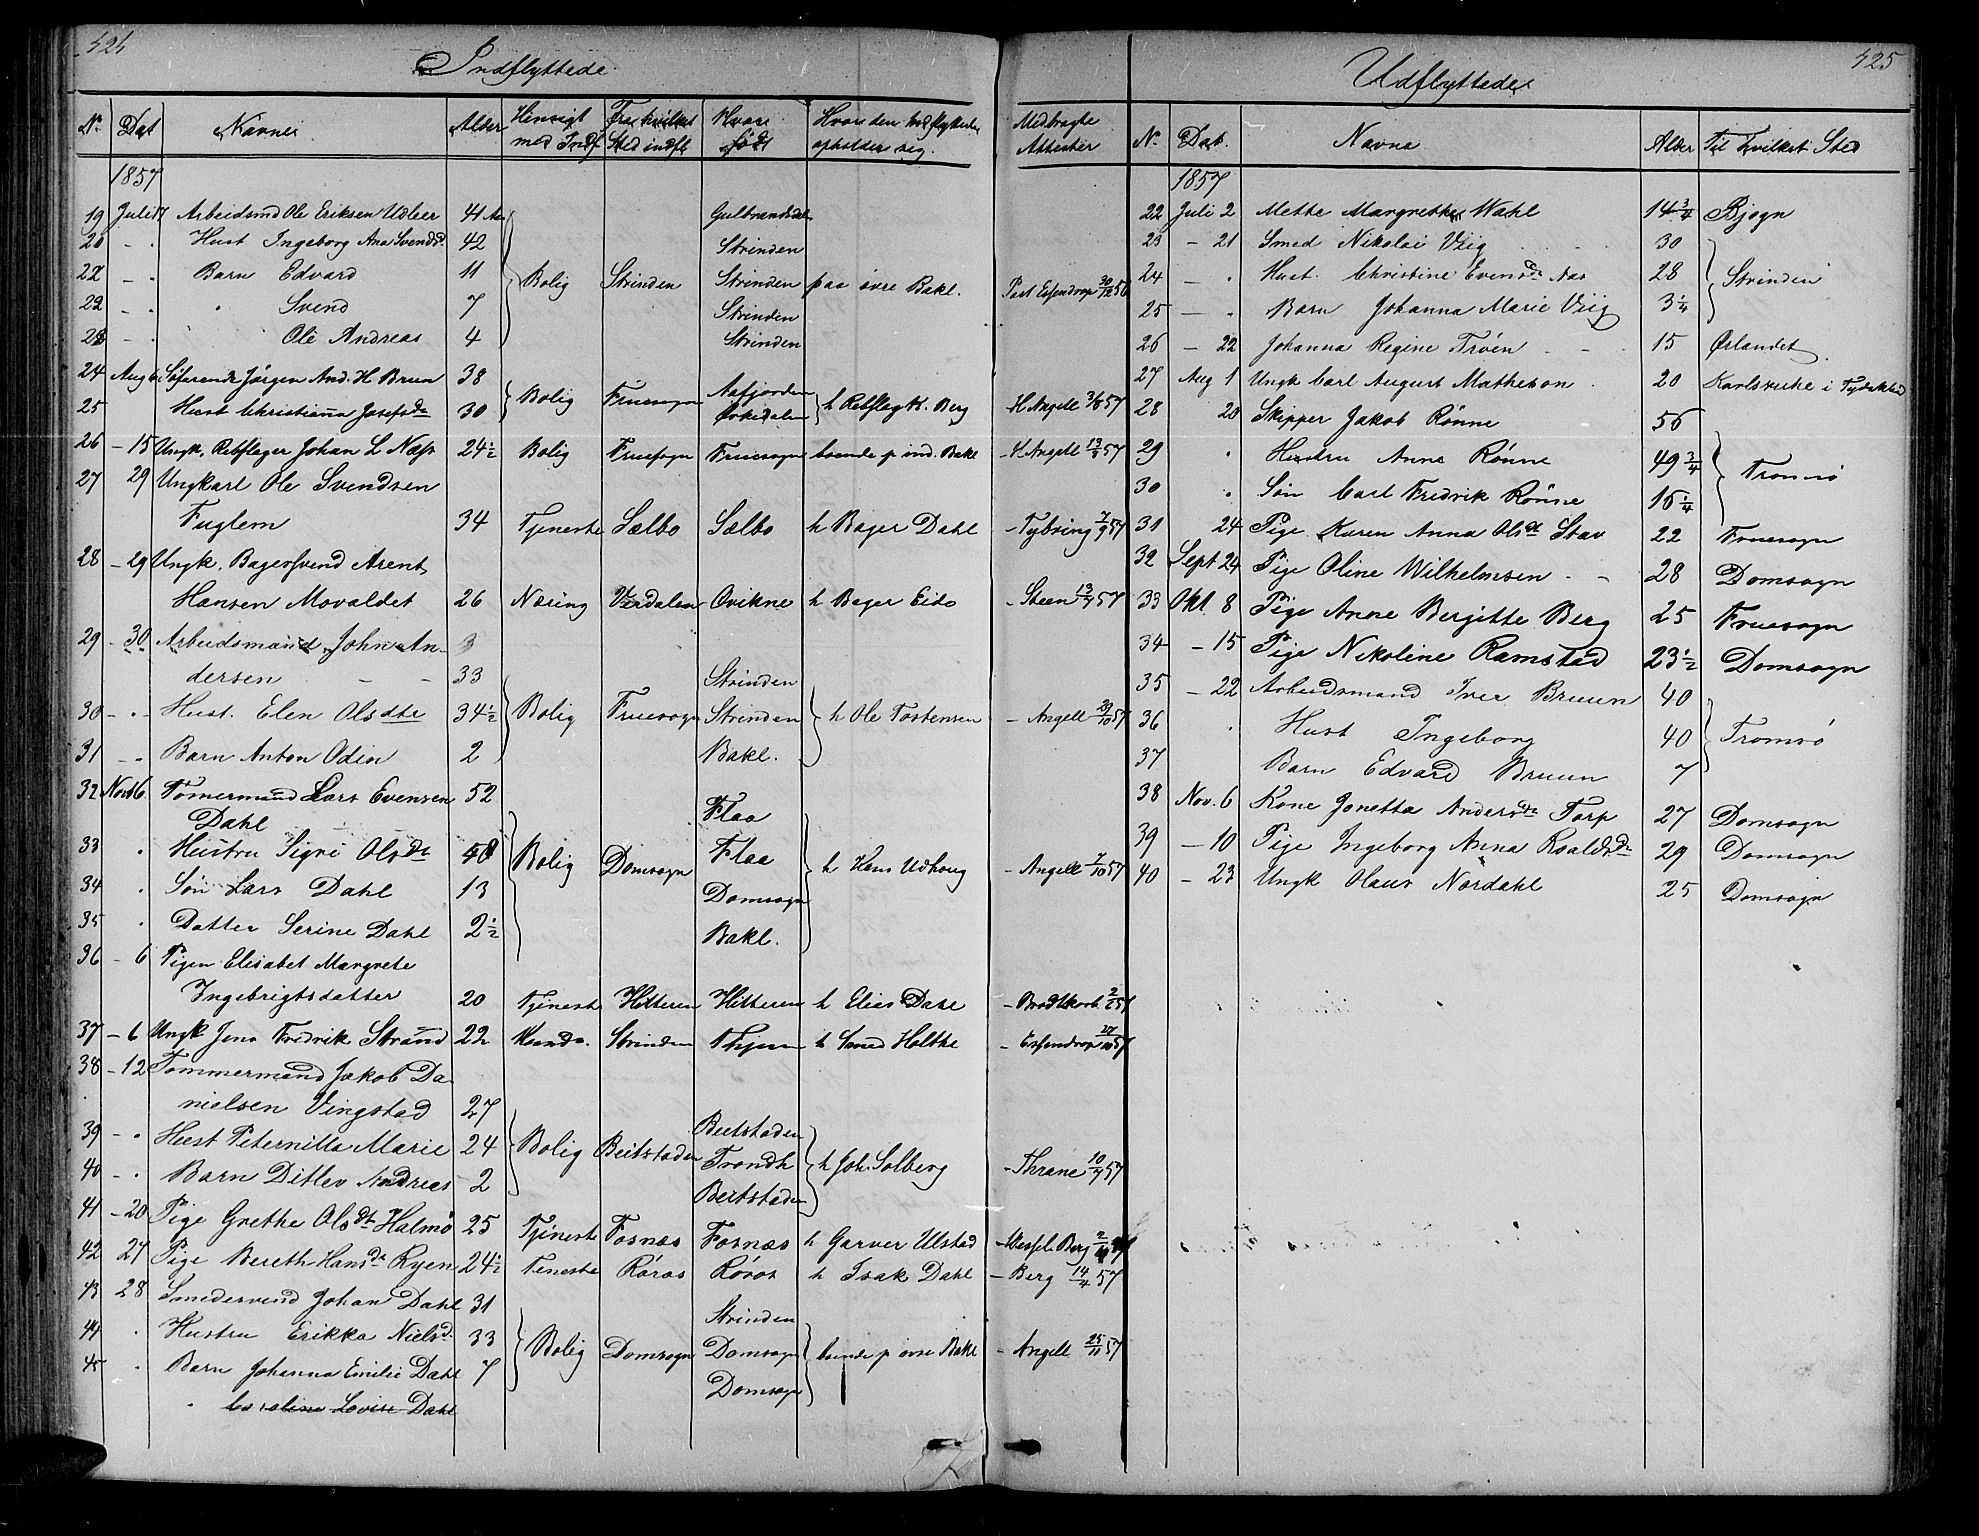 424
Indflyttede
Nr Dat Navne Alder Hensigt med Indf. Fra hvilket Sted indfl. Hvor født Hvor den Indflyttede opholder sig. Medbragte Attester
1857
19 Juli 17 Arbeidsmd Ole Eriksen Udleer 41 Aar Gulbrandsdal
20 - - Hust Ingeborg Ana Svendsd. 42 Strinden
22 - - Barn Edvard 11 Bolig Strinden Strinden paa övre Bakl. Past Essendrop 30/12 56
22 - - " Svend 7 Strinden
23 - - Ole Andreas 4 Strinden
24 Aug 6 Söfarende Jörgen And. H Brun 38 Bolig Fruesogn Aafjorden h Rebslag K. Berg - H Angell 3/8 57
25 Hust Christianna Josefsdr 30 Örkedalen
26 - 15 Ungk. Rebslager Johan L Næss 24 1/2 Bolig Fruesogn Fruesogn boende p ind. Bakl - H Angell 13/8 57
27 29 Ungkarl Ole Svendsen
Fuglem 34 Tjeneste Sælbo Sælbo h Bager Dahl - Tybring 7/9 57
28 - 29 Ungk. Bagersvend Arent
Hansen Movaldet 26 Næring Værdalen Qvikne h Bager Eids - Steen 13/9 57
29 - 30 Arbeidsmand John An-
dersen - - 33 Strinden
30 - " - Hust. Elen Olsdtr 34 1/2 Bolig Fruesogn Strinden h Ole Tostensen - Angell 29/10 57
31 - " Barn Anton Odin 2 Bakl.
32 Novb 6 Tömermand Lars Evensen 52
Dahl Flaa
33 " Hustru Sigri Olsdr 48 Bolig Domsogn Flaa h Hans Udhaug - Angell 7/10 57
34 " Sön Lars Dahl 13 Domsogn
35 " Datter Serine Dahl 2 1/2 Bakl.
36 - 6 Pigen Elisabet Margrete
Ingebrigtsdatter 20 Tjeneste Hitteren Hitteren h Elias Dahl - Brodtkorb 2/ 57
37 - 6 Ungk Jens Fredrik Strand 22 Strinden h Smed Holtke - Essendrop 27/10 57
38 - 12 Tømmermand Jakob Da-
nielsen Vingstad 27 Beitstaden
39 - " Hust Peternilla Marie 24 Bolig Beitstaden Trondh h Joh. Solberg - Thrane 10/9 57
40 - " Barn Ditlev Andreas 2 Beitstaden
41 - 20 Pige Grethe Olsdtr Halmö 25 Tjeneste Fosnæs Fosnæs h Garver Ulstad - Wessel Berg 2/10 57
42 27 Pige Bereth Hansdr Ryen 24 1/2 Teneste Röros Röros h Isak Dahl - Berg 14/4 57
43 28 Smedesvend Johan Dahl 31 Strinden
44 " Hustru Erikka Nielsd. 33 Bolig Domsogn Domsogn boende p övre Bakl - Angell 25/11 57
45 " Barn Johanna Emilie Dahl 7 Domsogn
" Caroline Lovise Dahl
425
Udflyttede
Nr Dat. Navne Alder Til hvilket Sted
1857
22 Juli 2 Mette Margrethe Wahl 14 3/4 Bjogn
23 - 21 Smed Nikolai Viig 30
24 - " Hust. Christine Evensdr Aas 28 Strinden
25 - " Barn Johanna Marie Viig 3 1/4
26 - 22 Johanna Regine Tröen - - 15 Ørlandet
27 Aug 1 Ungk Carl August Matheson 20 Karlsruhe i Tydskland
28 20 Skipper Jakob Rönne 56
29 " Hustru Anne Rönne 49 3/4 Tromsö
30 " Sön Carl Fredrik Rönne 16 1/4
31 24 Pige Karen Anna Olsdt Stav 22 Fruesogn
32 Sept 24 Pige Oline Wilhelmsen - - 28 Domsogn
33 Okt. 8 Pige Anne Bergitte Berg 25 Fruesogn
34 - 15 Pige Nikoline Ramstad 23 1/2 Domsogn
35 - 22 Arbeidsmand Iver Bruun 40
36 " Hust Ingeborg 40 Tromsö
37 Barn Edvard Bruun 7
38 Nov. 6 Kone Jonetta Andersdr Torp 27 Domsogn
39 - 10 Pige Ingeborg Anna Roaldsdr 29 Domsogn
40 - 23 Ungk Olaus Nordahl 25 Domsogn